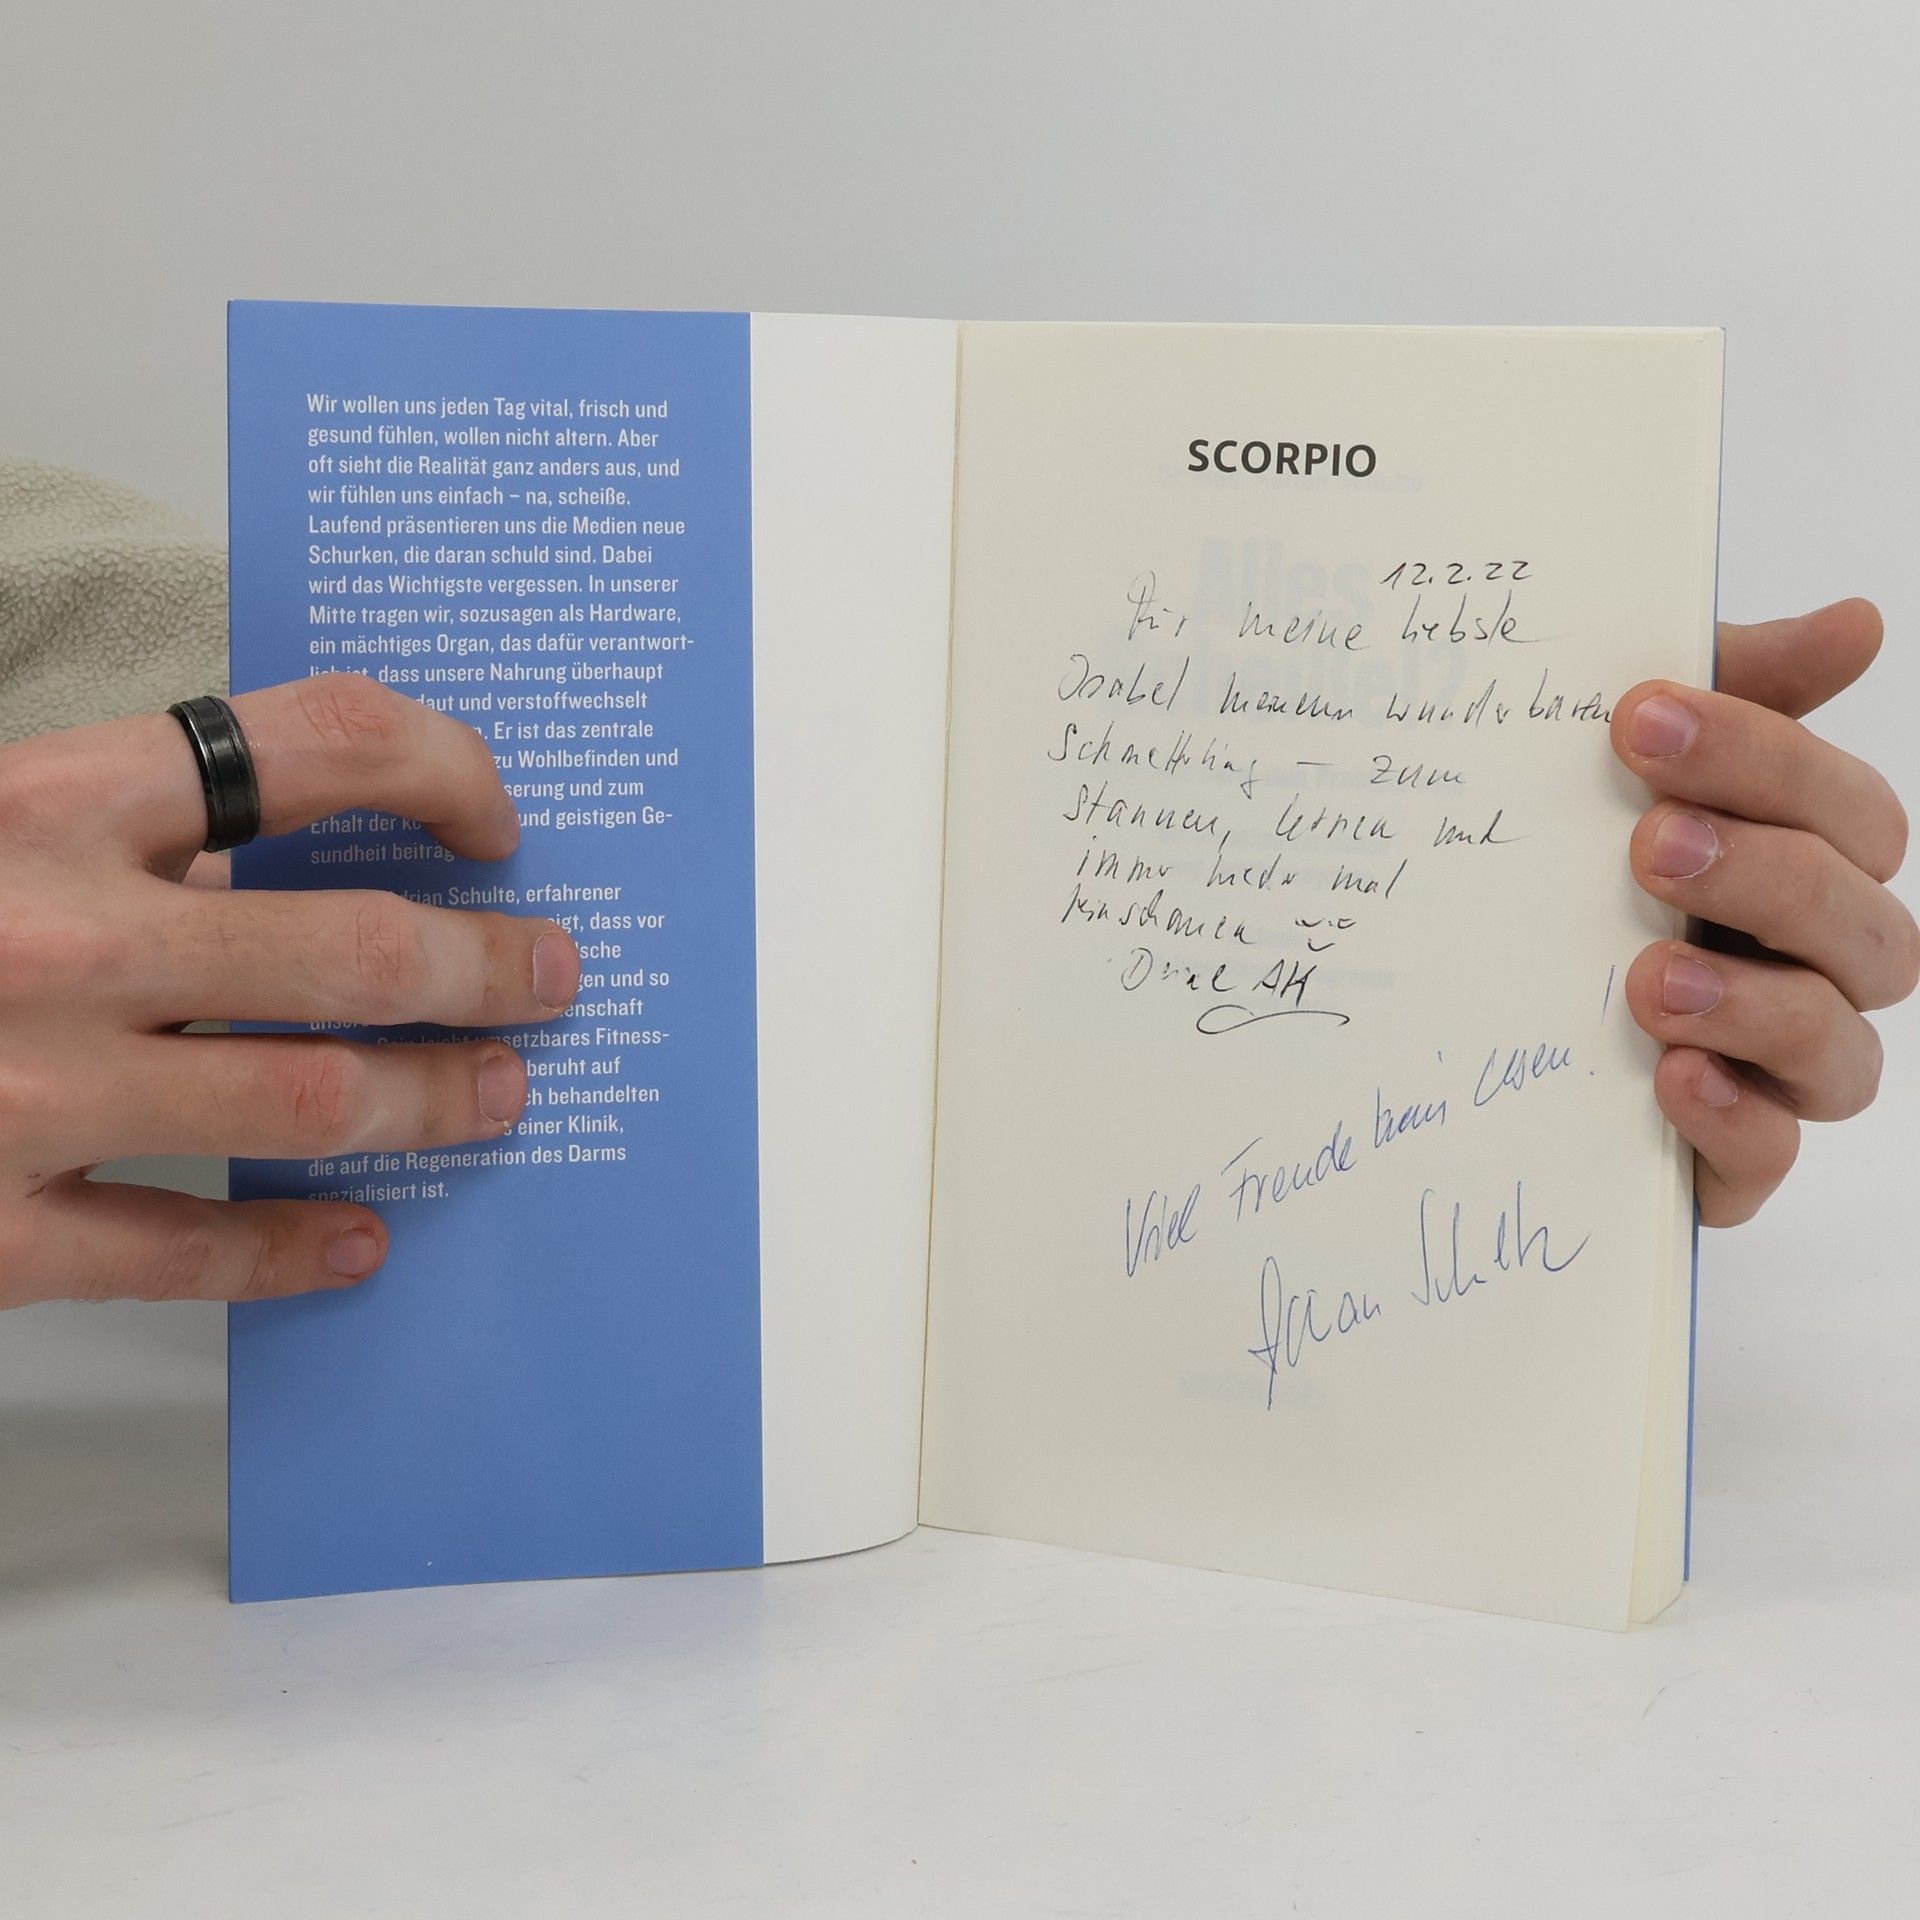 Wir wollen uns jeden Tag vital, frisch und
gesund fühlen, wollen nicht altern. Aber
oft sieht die Realität ganz anders aus, und
wir fühlen uns einfach – na, scheiße.
Laufend präsentieren uns die Medien neue
Schurken, die daran schuld sind. Dabei
wird das Wichtigste vergessen. In unserer
Mitte tragen wir, sozusagen als Hardware,
ein mächtiges Organ, das dafür verantwort-
dass unsere Nahrung überhaupt
und verstoffwechselt
Er ist das zentrale
zu Wohlbefinden und
und zum
Erhalt der und geistigen Ge-
sundheit
Schulte, erfahrener
dass vor
und so
umsetzbares Fitness-
beruht auf
behandelten
einer Klinik,
die auf die Regeneration des Darms
spezialisiert ist.
SCORPIO
12.2.22
Für meine liebste
Isabel meinem wunderbaren
Schmetterling – zum
Staunen, lernen und
immer wieder mal
reinschauen
Deine AK
Viel Freude beim Lesen!
Adrian Schulte